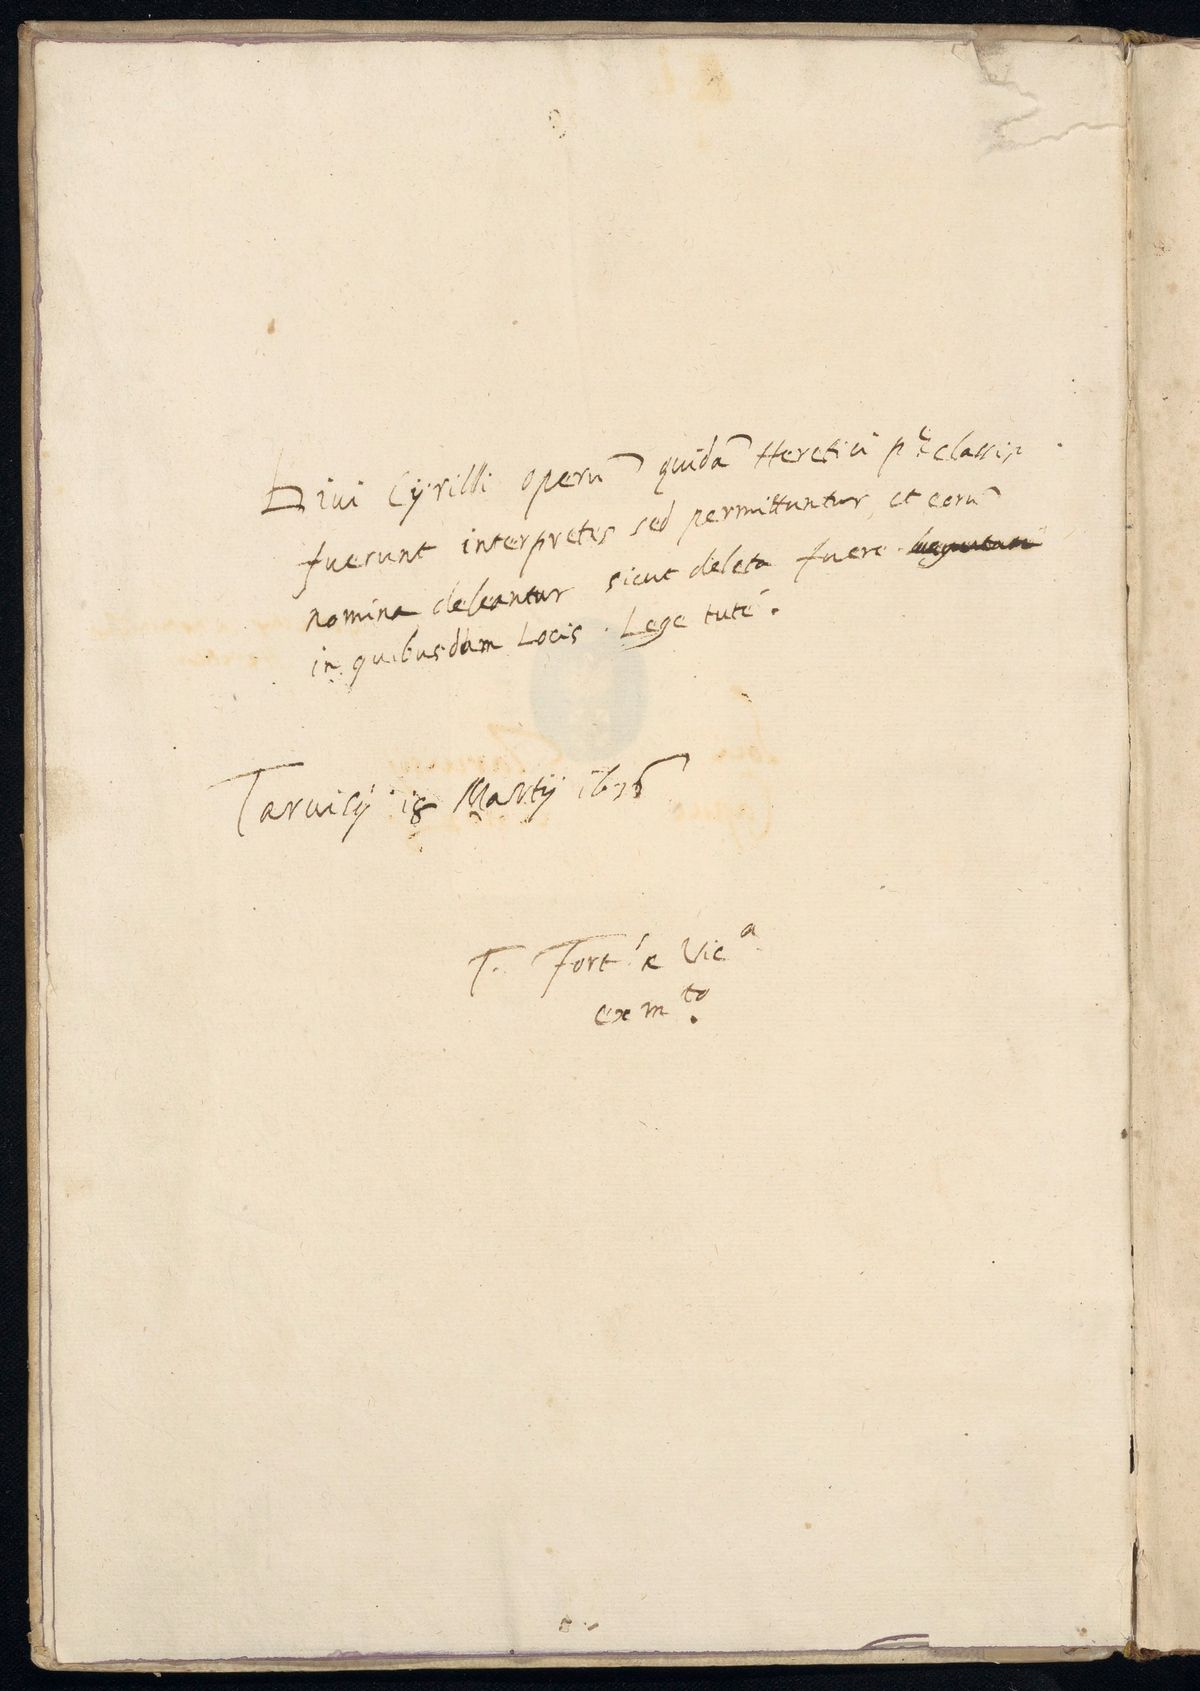 Diui Cyrilli operũ quidã Heretici pᵉ classis
fuerunt interpretes sed permittuntur, et eorũ
nomina deleantur sicut deleta fuere
in quibusdam Locis. Lege tutè.
Taruisÿ 18 Martÿ 1636
T. Fort. Vicᵃ
ex mᵗᵒ.